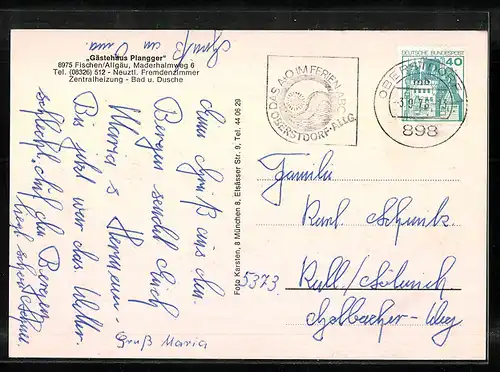 Gruß an Oma
„Gästehaus Plangger"
8975 Fischen/Allgäu, Maderhalmweg 6
Tel. (08326) 512 - Neuztl. Fremdenzimmer
Zentralheizung - Bad u. Dusche
Gruß aus den
Bergen sendet Euch
Maria & Hermann.
Bis jetzt war das Wetter
schlecht, auf den Bergen
liegt schon Schnee.
Gruß Maria
Foto Karsten, 8 München 8, Elsässer Str. 9, Tel. 44 06 29
DAS A·O IM FERIEN-ABC
OBERSTDORF-ALLG.
DEUTSCHE BUNDESPOST
40
OBERSTDORF
898
Familie
Karl Schmitz
5373
Kall/
Golbacher-Weg